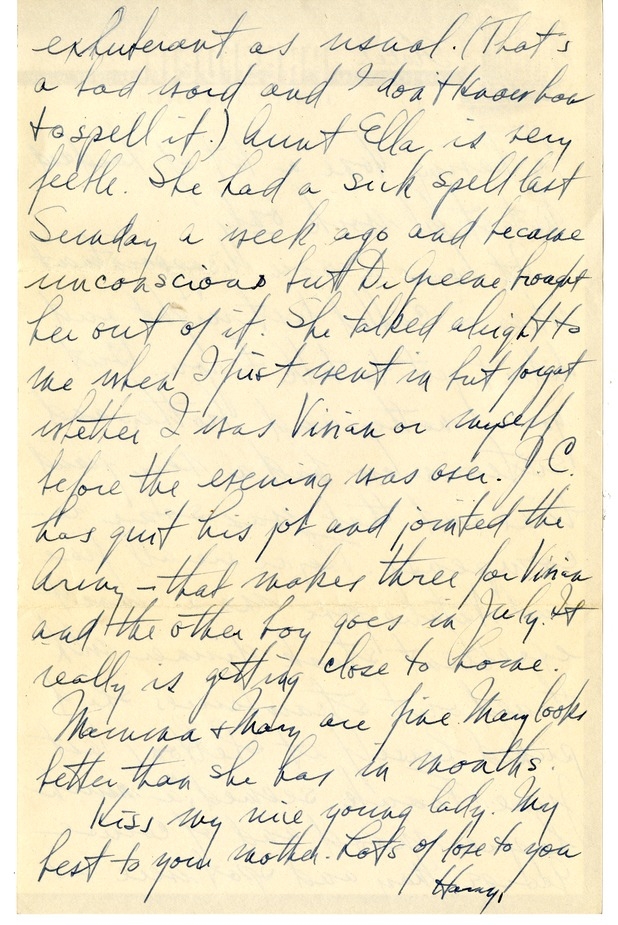 exhuterant as usual. (That's
a bad word and I don't know how
to spell it.) Aunt Ella is very
feeble. She had a sick spell last
Sunday a week ago and became
unconscious but Dr Greene brought
her out of it. She talked alright to
me when I just went in but forgot
whether I was Vivian or myself
before the evening was over. J.C.
has quit his job and jointed the
Army - that makes three for Vivian
and the other boy goes in July. It
really is getting close to home.
Mamma & Mary are fine. Mary looks
better than she has in months.
Kiss my nice young lady. My
best to your mother. Lots of love to you